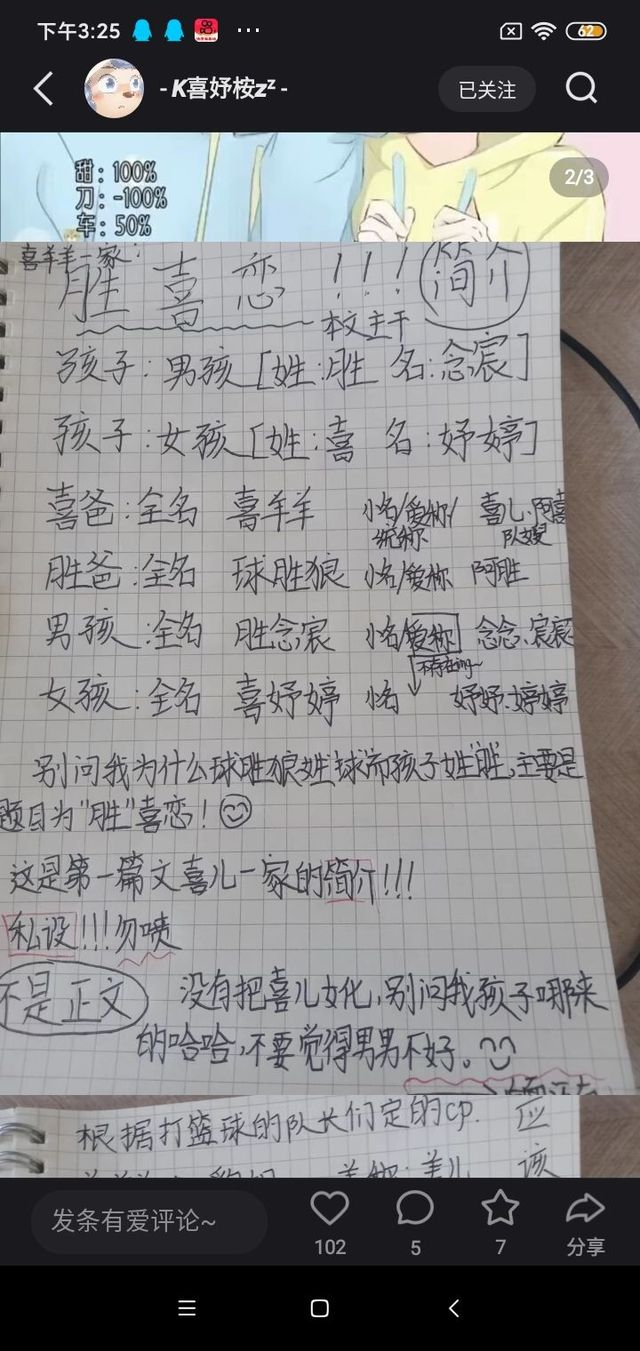 下午3:25
62
-K喜妤桉zᶻ-
已关注
2/3
甜：100%
刀：-100%
车：50%
喜羊羊一家：
胜喜恋！！！简介
本文主干
孩子：男孩[姓：胜 名：念宸]
孩子：女孩[姓：喜 名：妤婷]
喜爸：全名 喜羊羊 小名/爱称/统称 喜儿、阿喜
胜爸：全名 球胜狼 小名/爱称 阿胜
男孩：全名 胜念宸 小名爱称 念念、宸宸
不存在ing~
女孩：全名 喜妤婷 小名 妤妤、婷婷
别问我为什么球胜狼姓"球"而孩子姓"胜"，主要是
题目为"胜"喜恋！
这是第一篇文喜儿一家的简介!!!
私设!!!勿喷
不是正文
没有把喜儿女化，别问我孩子哪来
的哈哈，不要觉得男男不好。
根据打篮球的队长们定的cp. 应
该
发条有爱评论~
102
5
7
分享